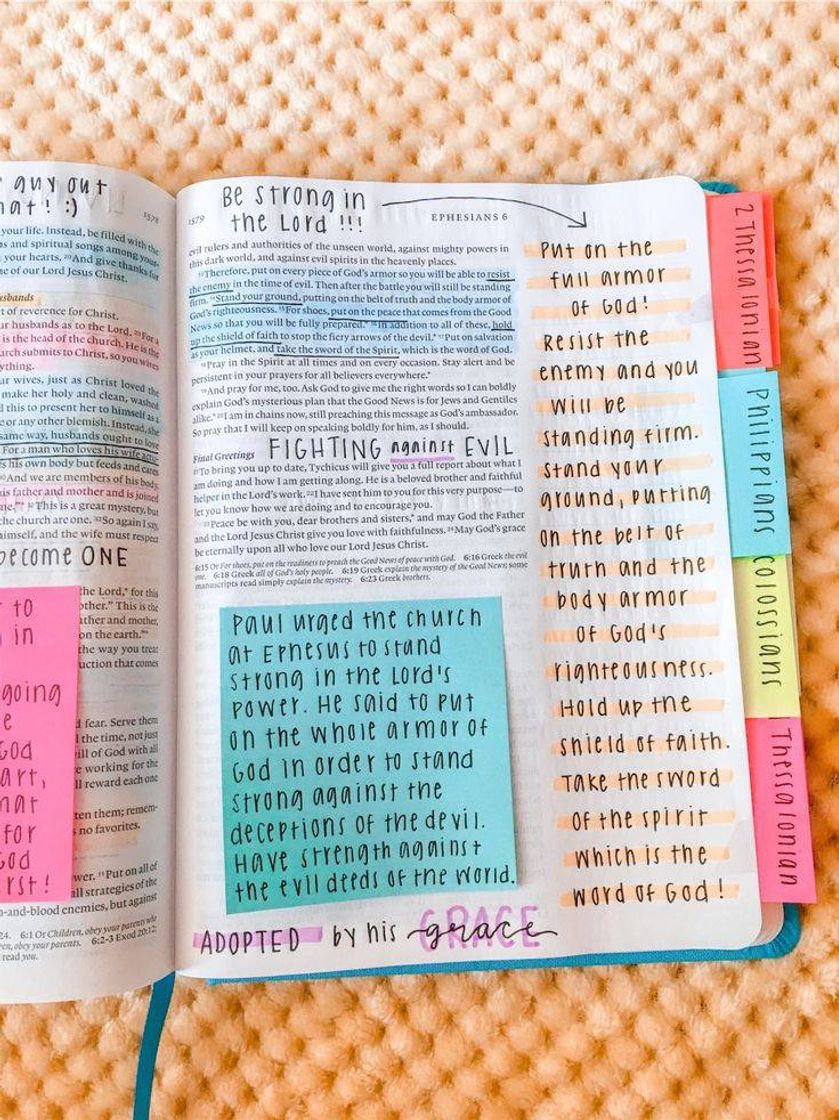 guy out
hat! :)
1578
your life. Instead, be filled with the
s and spiritual songs among your-
your hearts. 20And give thanks for
e of our Lord Jesus Christ.
sbands
t of reverence for Christ.
ur husbands as to the Lord. 23For a
is the head of the church. He is the
urch submits to Christ, so you wives
ything.
ur wives, just as Christ loved the
make her holy and clean, washed
d this to present her to himself as a
or any other blemish. Instead, she
same way, husbands ought to love
For a man who loves his wife actu-
s his own body but feeds and cares
And we are members of his body.
is father and mother and is joined
ne." This is a great mystery, but
the church are one. 33So again I say,
himself, and the wife must respect
become ONE
the Lord," for this
other." This is the
father and mother,
on the earth."
the way you treat
uction that comes
d fear. Serve them
l the time, not just
ill of God with all
re working for the
ll reward each one
ten them; remem-
s no favorites.
wer. 11Put on all of
ll strategies of the
h-and-blood enemies, but against
24. 6:1 Or Children, obey your parents who
n, obey your parents. 6:2-3 Exod 20:12;
read you.
to
in
going
e
God
art,
hat
for
God
rst!
1579
Be strong in
the Lord !!!
EPHESIANS 6
evil rulers and authorities of the unseen world, against mighty powers in
this dark world, and against evil spirits in the heavenly places.
13Therefore, put on every piece of God's armor so you will be able to resist
the enemy in the time of evil. Then after the battle you will still be standing
firm. 14Stand your ground, putting on the belt of truth and the body armor of
God's righteousness. 15For shoes, put on the peace that comes from the Good
News so that you will be fully prepared.* 16In addition to all of these, hold
up the shield of faith to stop the fiery arrows of the devil.* 17Put on salvation
as your helmet, and take the sword of the Spirit, which is the word of God.
18Pray in the Spirit at all times and on every occasion. Stay alert and be
persistent in your prayers for all believers everywhere.*
19And pray for me, too. Ask God to give me the right words so I can boldly
explain God's mysterious plan that the Good News is for Jews and Gentiles
alike.* 20I am in chains now, still preaching this message as God's ambassador.
So pray that I will keep on speaking boldly for him, as I should.
Final Greetings FIGHTING against EVIL
21To bring you up to date, Tychicus will give you a full report about what I
am doing and how I am getting along. He is a beloved brother and faithful
helper in the Lord's work. 22I have sent him to you for this very purpose—to
let you know how we are doing and to encourage you.
23Peace be with you, dear brothers and sisters,* and may God the Father
and the Lord Jesus Christ give you love with faithfulness. 24May God's grace
be eternally upon all who love our Lord Jesus Christ.
6:15 Or For shoes, put on the readiness to preach the Good News of peace with God. 6:16 Greek the evil
one. 6:18 Greek all of God's holy people. 6:19 Greek explain the mystery of the Good News; some
manuscripts read simply explain the mystery. 6:23 Greek brothers.
Paul urged the church
at Ephesus to stand
strong in the Lord's
power. He said to put
on the whole armor of
God in order to stand
strong against the
deceptions of the devil.
Have strength against
the evil deeds of the world.
ADOPTED by his GRACE grace
Put on the
full armor
of God!
Resist the
enemy and you
will be
standing firm.
stand your
ground, putting
on the belt of
truth and the
body armor
of God's
righteousness.
Hold up the
shield of faith.
Take the sword
of the spirit
which is the
word of God!
2 Thessalonian
Philippians
colossians
1 Thessalonian